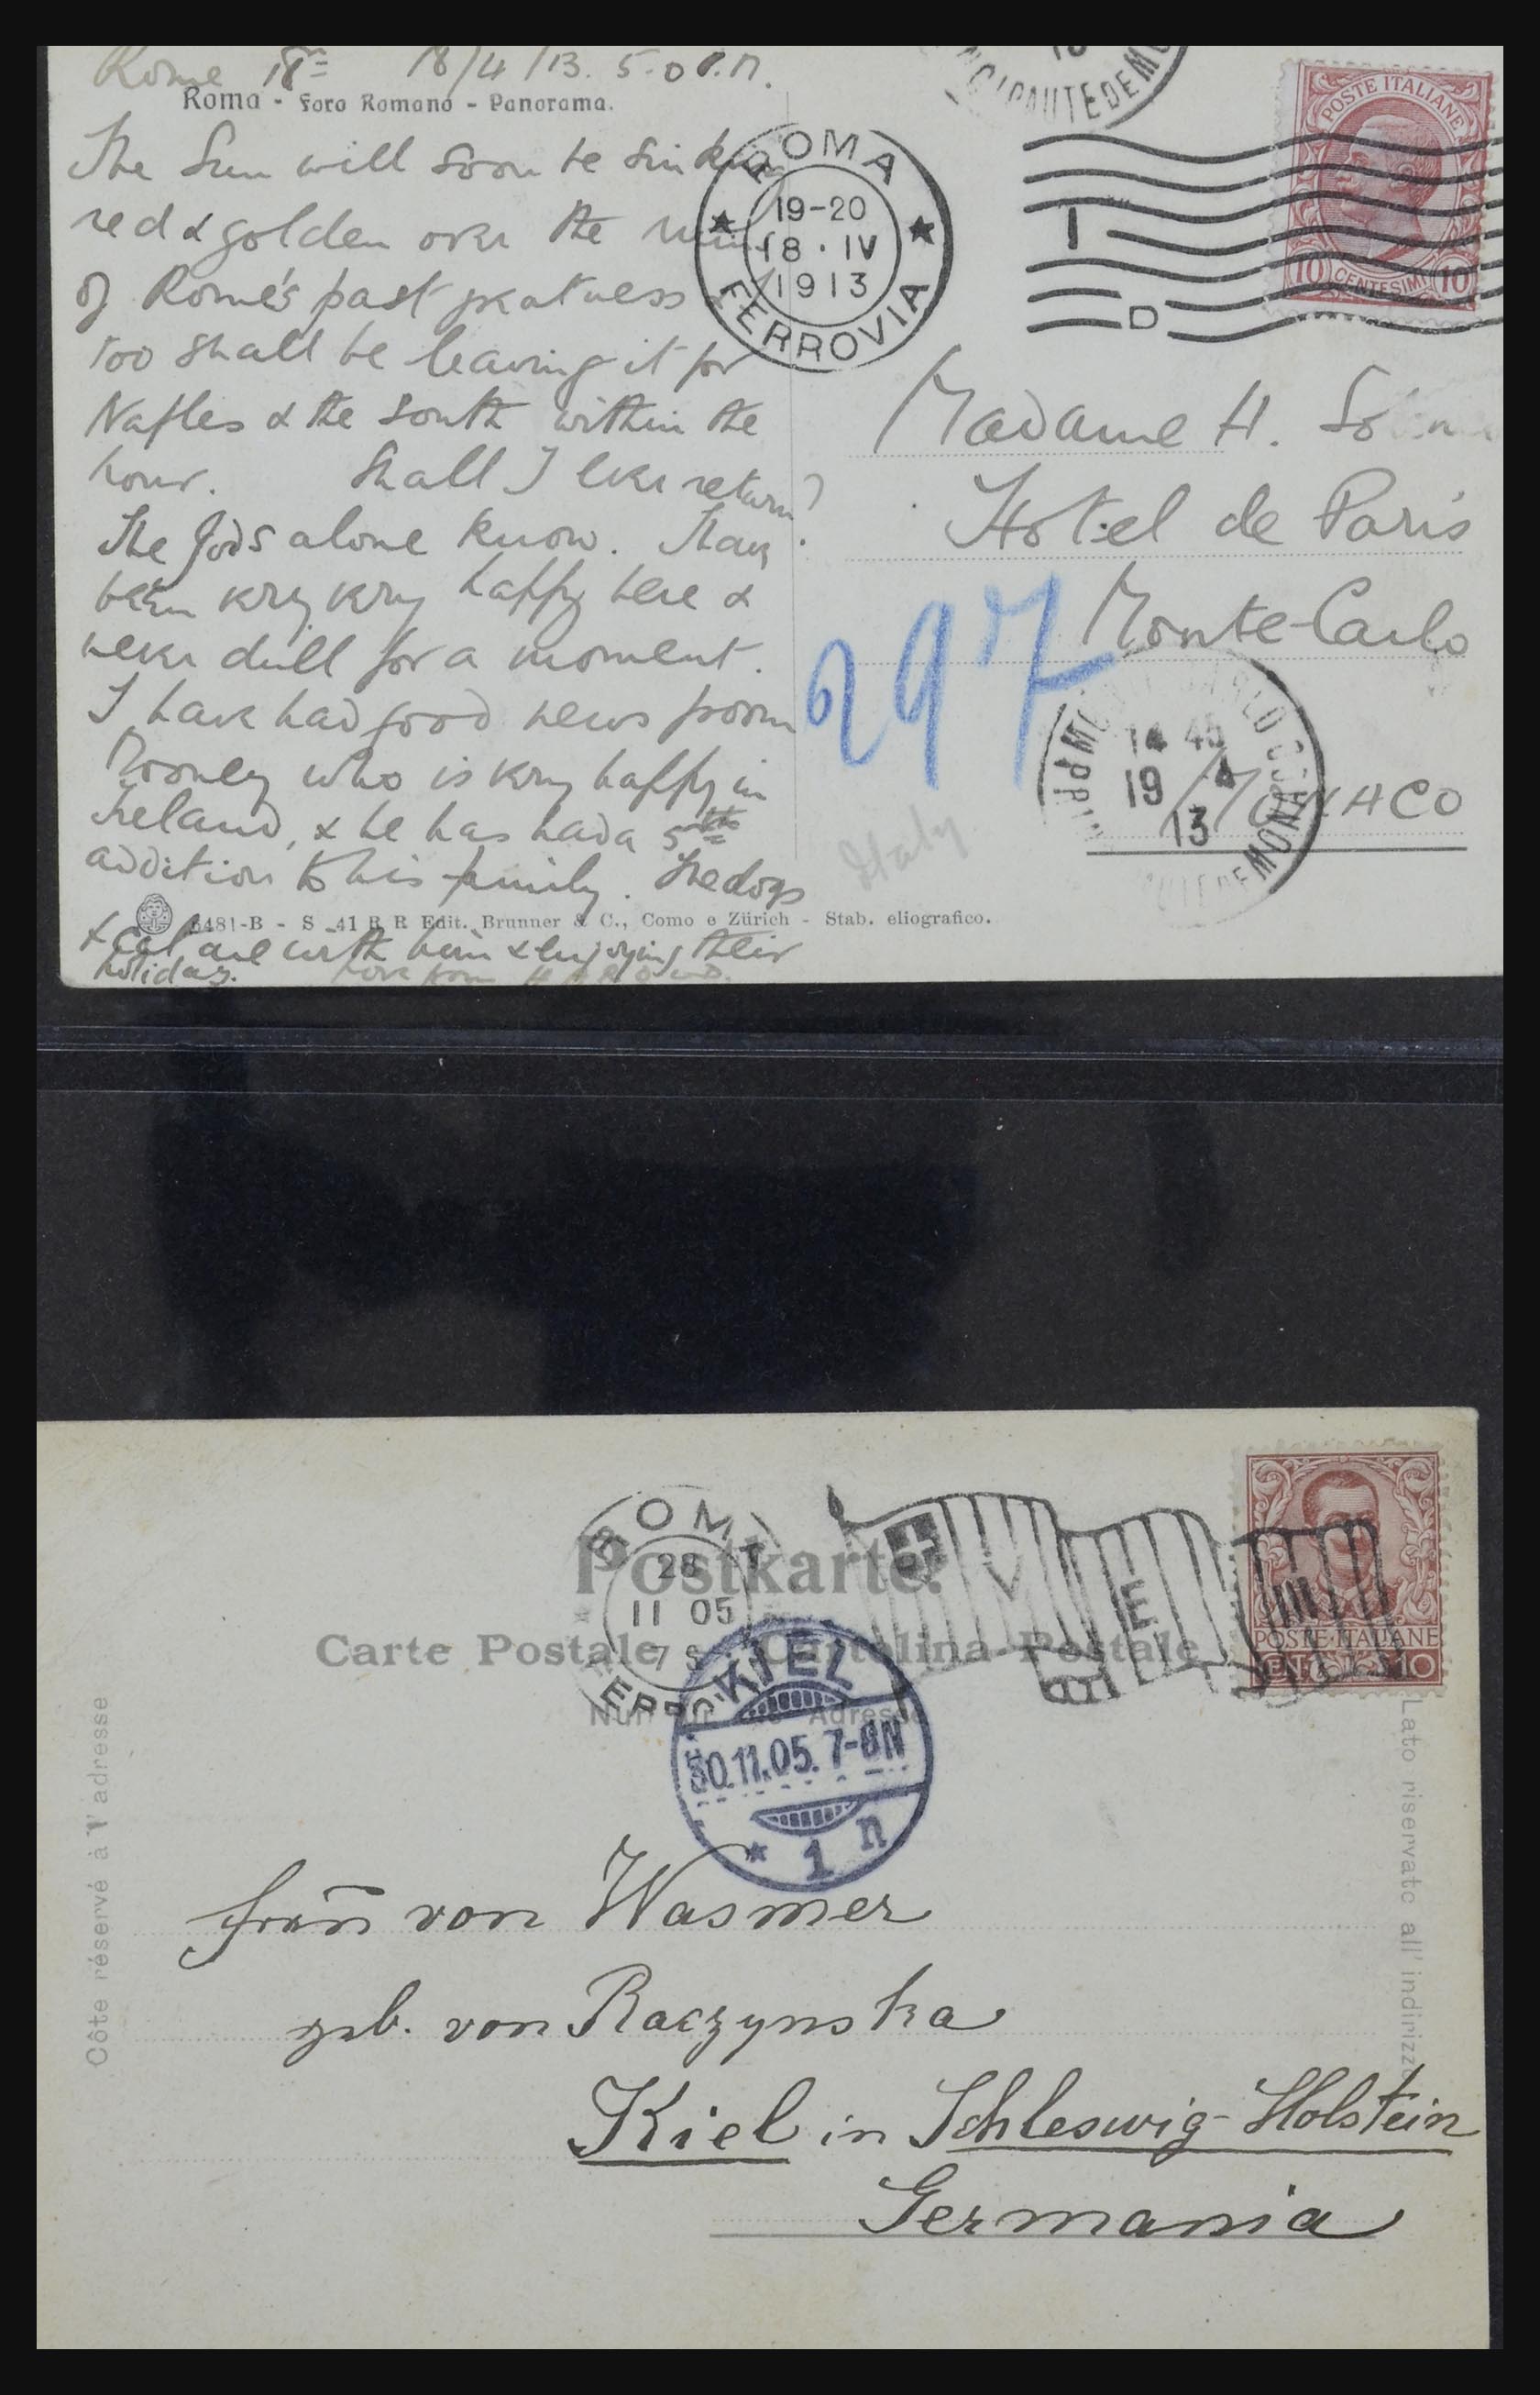 Rome 18/4/13. 5-0 P.M.
Roma - Foro Romano - Panorama.
The Sun will soon be sinking
red & golden over the ruins
of Rome's past greatness &
too shall be leaving it for
Naples & the South within the
hour. Shall I ever return?
The Gods alone know. I have
been very very happy here &
never dull for a moment.
I have had good news from
Rooney who is very happy in
Ireland, & he has had a 5th
addition to his family. The dogs
6481-B - S 41 R R Edit. Brunner & C., Como e Zürich - Stab. eliografico.
& Cat are with him & enjoying their
holiday. Love from HAROLD.
ROMA
19-20
18·IV
1913
FERROVIA
I
D
POSTE ITALIANE
10 CENTESIMI 10
Madame H.
Hotel de Paris
Monte-Carlo
MONACO
297
Italy
14 45
19 4
13
Postkarte.
Carte Postale Cartolina Postale
Nur für die Adresse
Côte réservé à l'adresse
Lato riservato all'indirizzo
ROMA
28
11 05
7 S
FERRO
V E III
POSTE ITALIANE
KIEL
30.11.05. 7-8N
* 1 n
Frau von Wasmer
geb. von Raczynska
Kiel in Schleswig-Holstein
Germania